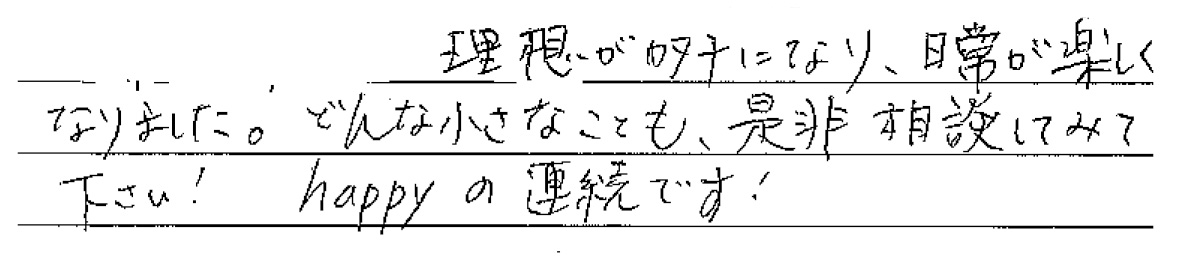 理想がカタチになり、日常が楽しく
なりました。どんな小さなことも、是非相談してみて
下さい! happyの連続です!